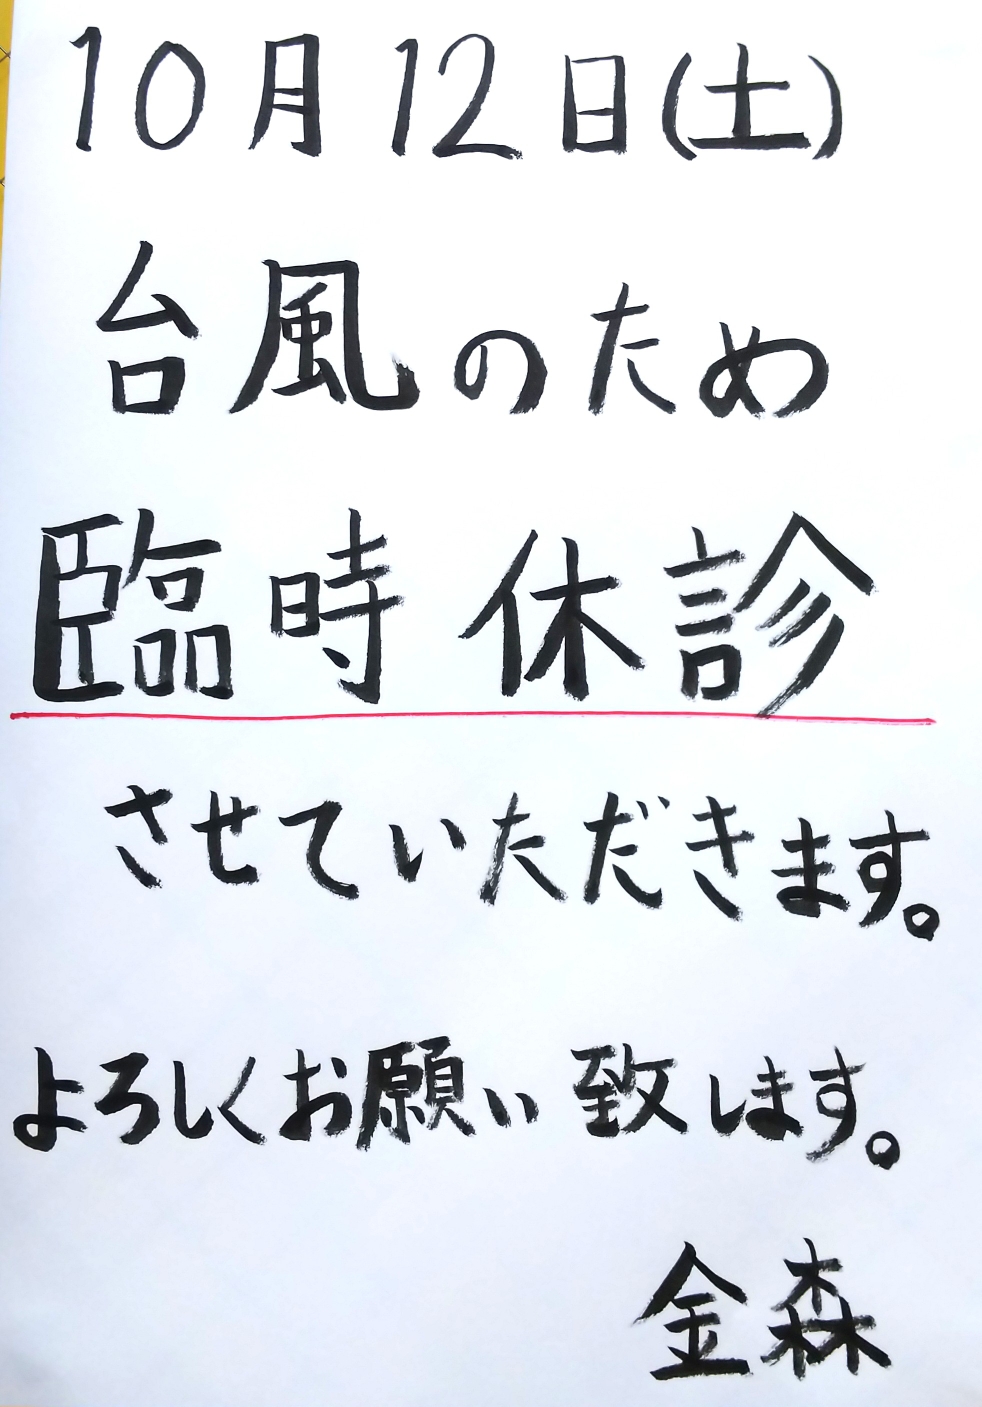 10月12日(土)
台風のため
臨時休診
させていただきます。
よろしくお願い致します。
金森